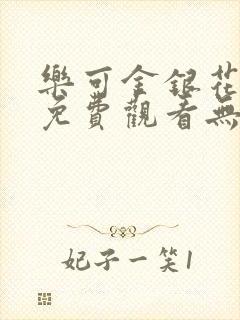 樂可金銀花
免費觀看無
妃子一笑1